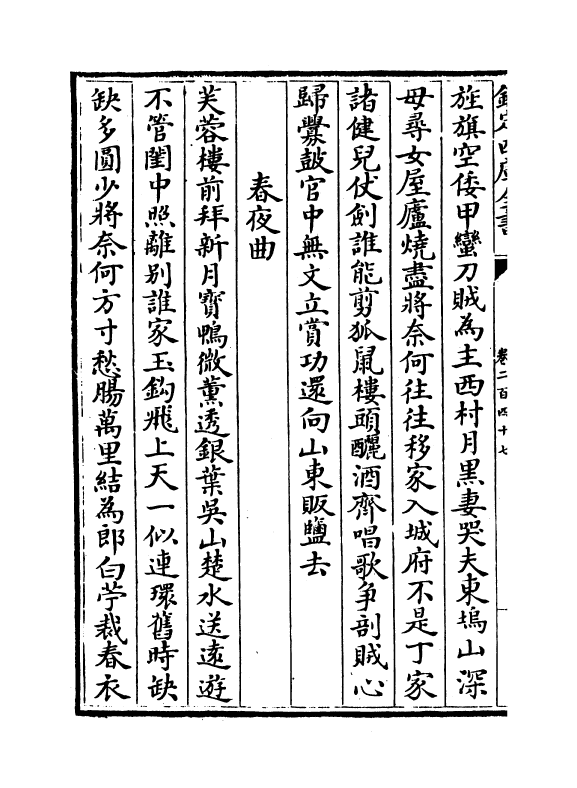 欽定四庫全書
卷二百四十七
旌旗空倭甲蠻刀賊為主西村月黑妻哭夫東塢山深
母尋女屋廬燒盡將奈何往往移家入城府不是丁家
諸健兒仗劍誰能剪狐鼠樓頭釃酒齊唱歌爭剖賊心
歸爨鼓官中無文立賞功還向山東販鹽去
春夜曲
芙蓉樓前拜新月寶鴨微薰透銀葉吳山楚水送遠遊
不管閨中照離別誰家玉鈎飛上天一似連環舊時缺
缺多圓少將奈何方寸愁腸萬里結為郎白苧裁春衣